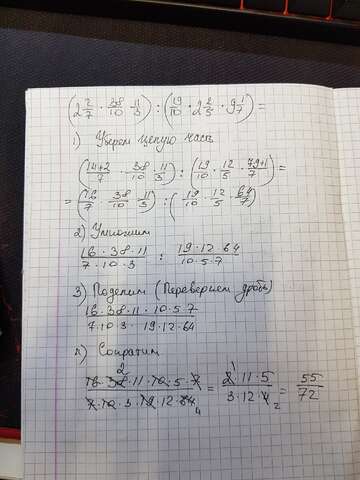 (2 2/7 · 38/10 · 11/3) : (19/10 · 2 2/5 · 9 1/7) =
1) Уберем целую часть
(14+2/7 · 38/10 · 11/3) : (19/10 · 12/5 · 79+1/7) =
= (16/7 · 38/10 · 11/3) : (19/10 · 12/5 · 64/7)
2) Умножим
16·38·11/7·10·3 : 19·12·64/10·5·7
3) Поделим (Перевернем дробь)
16·38·11·10·5·7/7·10·3·19·12·64
4) Сократим
16·38 2·11·10·5·7/7·10·3·19·12·64 4 = 2 1·11·5/3·12·4 2 = 55/72